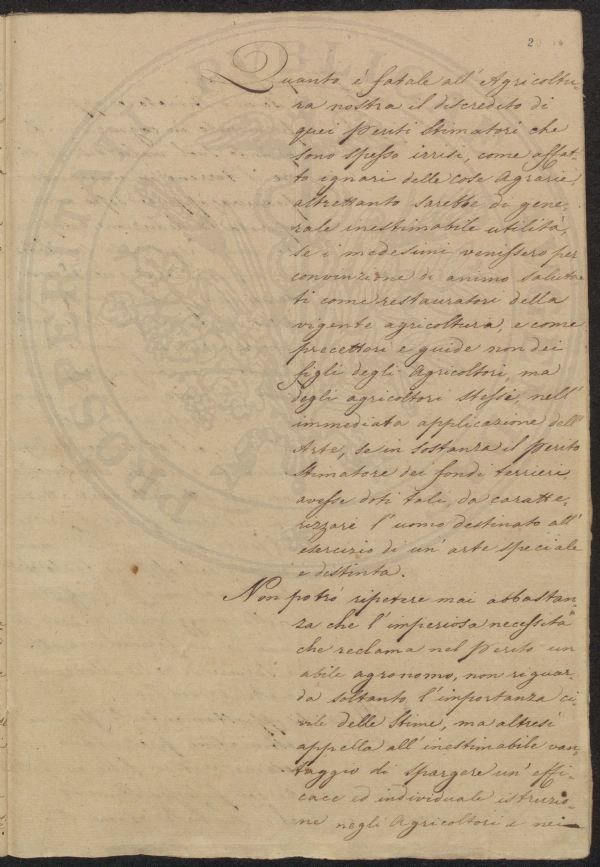 2
Quanto é fatale all'Agricoltu-
ra nostra il discredito di
quei Periti Stimatori che
sono spesso irrisi, come affat-
to ignari delle cose Agrarie,
altrettanto sarebbe di gene-
rale inestimabile utilità,
se i medesimi venissero per
convinzione di animo saluta-
ti come restauratori della
vigente agricoltura, e come
precettori e guide non dei
figli degli Agricoltori, ma
degli agricoltori stessi, nell'
immediata applicazione dell'
Arte, se in sostanza il Perito
Stimatore dei fondi terrieri
avesse doti tali, da caratte-
rizzare l'uomo destinato all'
esercizio di un'arte speciale
e distinta.
Non potrò ripetere mai abbastan-
za che l'imperiosa necessità
che reclama nel Perito un
abile agronomo, non riguar-
da soltanto l'importanza ci-
vile delle Stime, ma altresì
appella all'inestimabile van-
taggio di spargere un'effi-
cace ed individuale istruzio-
ne negli Agricoltori e nei